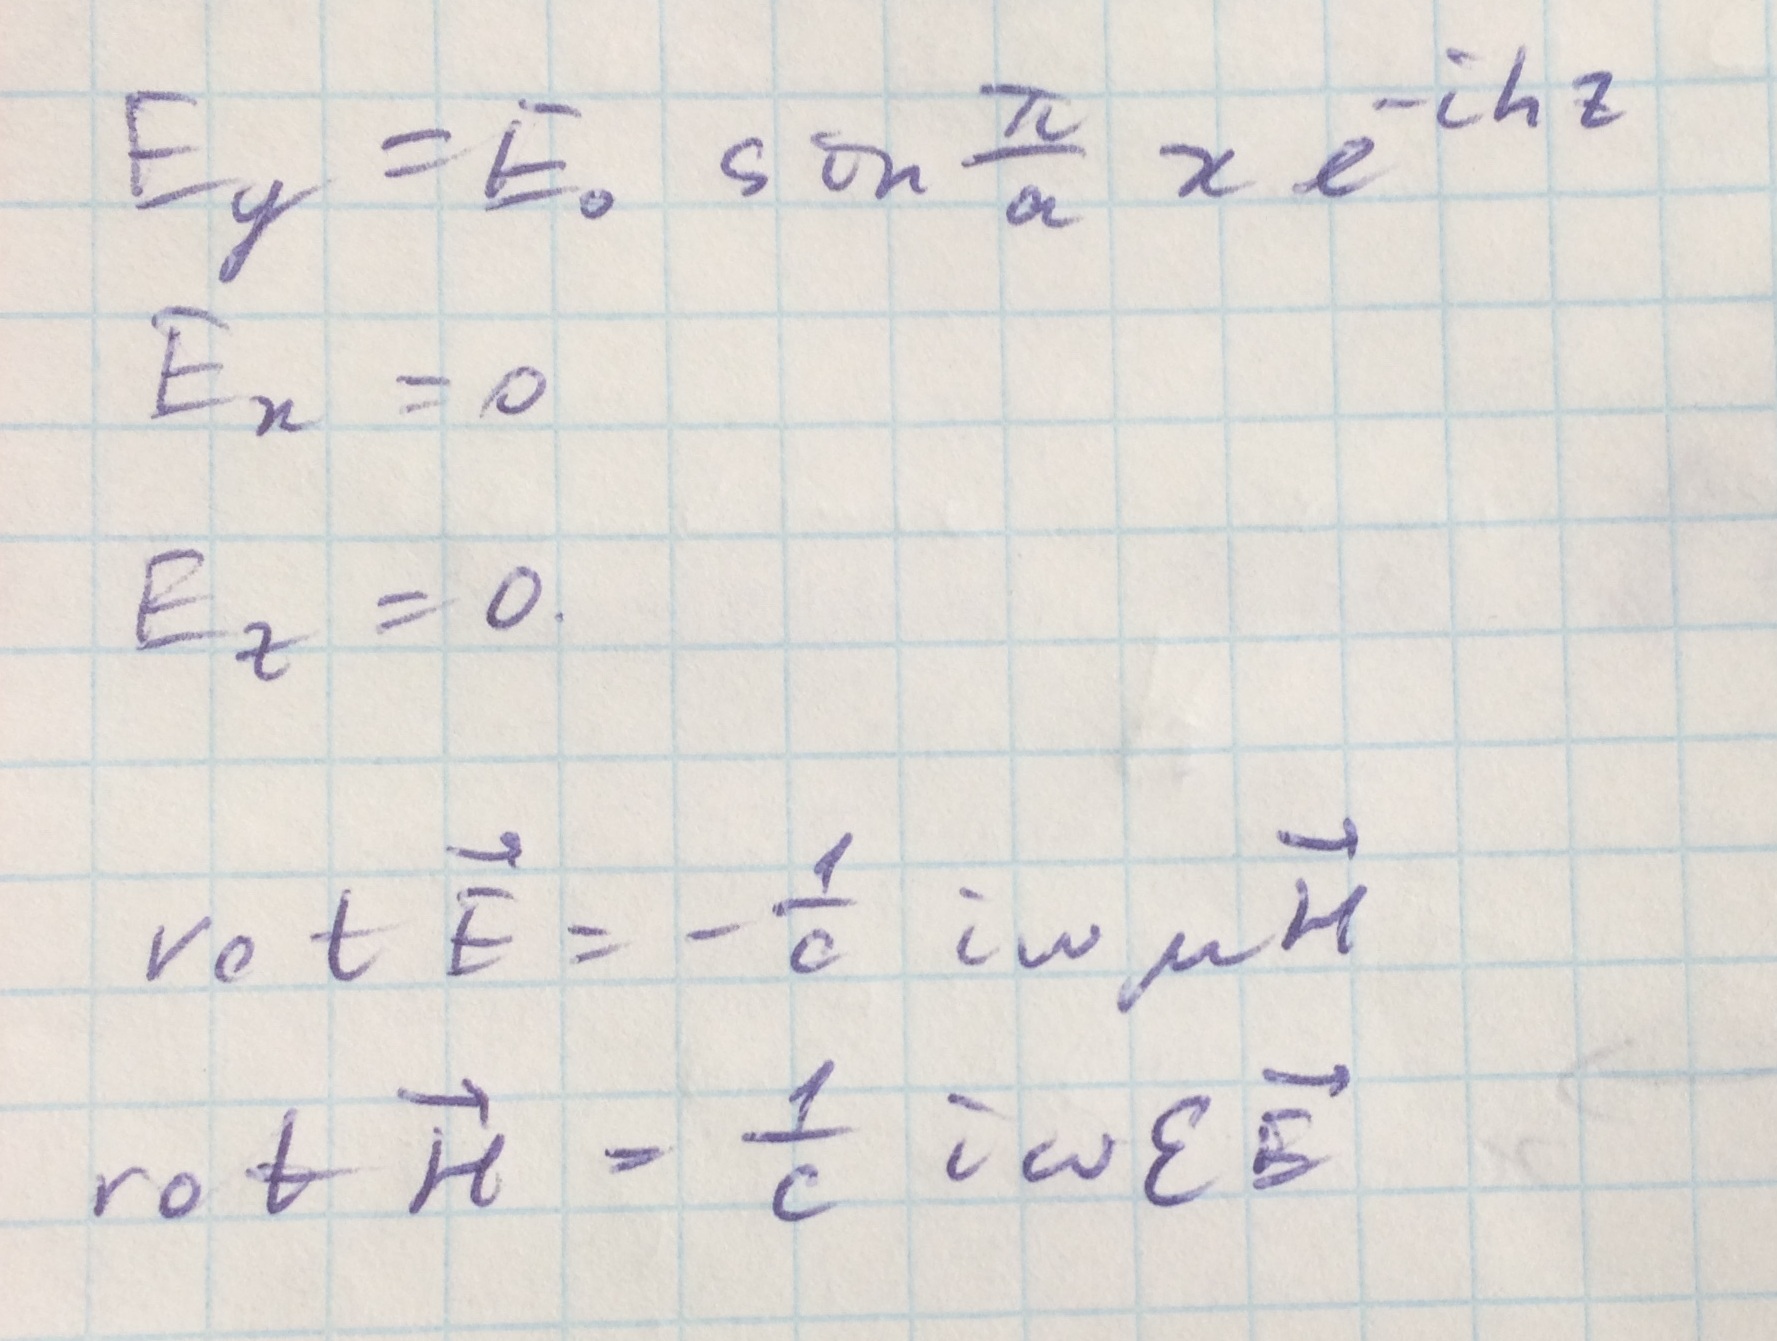 E_y = E_0 sin π/a x e^{-ihz}
E_x = 0
E_z = 0.
rot E⃗ = - 1/c iωμH⃗
rot H⃗ = 1/c iωεE⃗